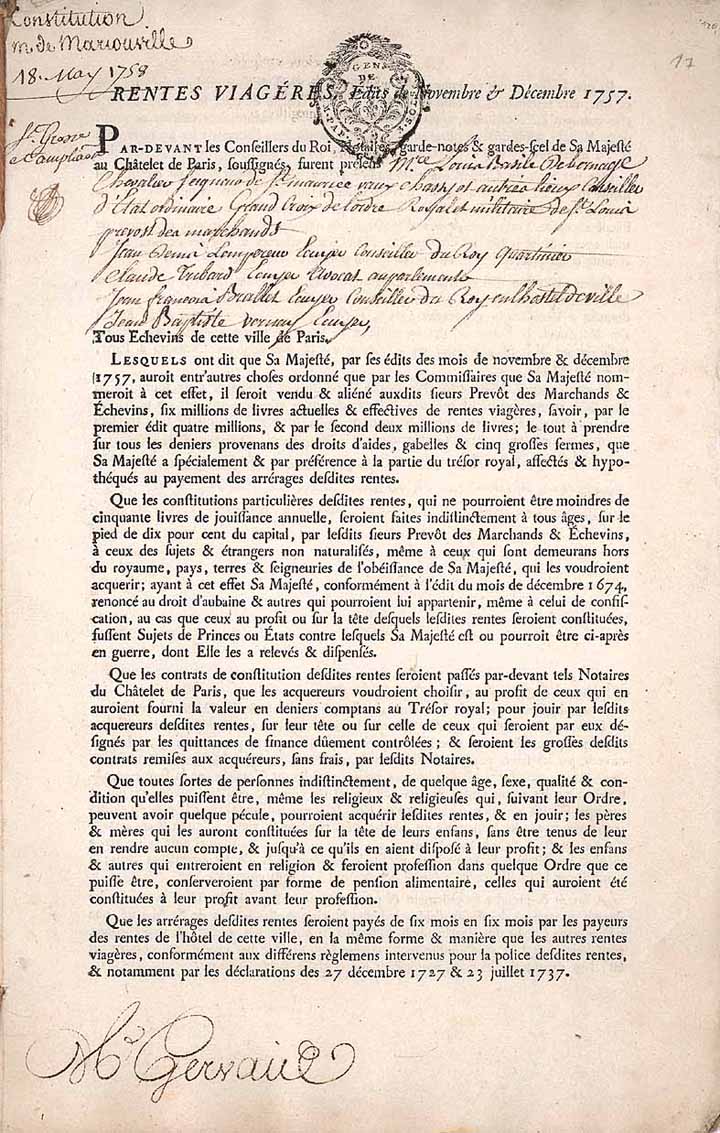 Constitution
m de Mariouville
18. May 1758
17
RENTES VIAGÉRES, Edits de Novembre & Décembre 1757.
GENS
DE
Sr. Grosse
PAR-DEVANT les Conseillers du Roi, Notaires, garde-notes & gardes-scel de Sa Majesté
au Châtelet de Paris, soussignés, furent présens Mre Louis Basile De bernage
Chevalier seigneur de St. maurice vaux chassy et autres lieux Conseiller
d'État ordinaire Grand Croix de l'ordre Royal et militaire de St. Louis
prevost des marchands
Jean Denis Lempereur Ecuyer Conseiller du Roy Quartinier
Claude Tribard Ecuyer Avocat au parlement
Jean françois Brallet Ecuyer Conseiller du Roy en l'hostel de ville
Jean Baptiste vernay Ecuyer,
Tous Echevins de cette ville de Paris.
LESQUELS ont dit que Sa Majesté, par ses édits des mois de novembre & décembre
1757, auroit entr'autres choses ordonné que par les Commissaires que Sa Majesté nom-
meroit à cet effet, il seroit vendu & aliéné auxdits sieurs Prevôt des Marchands &
Échevins, six millions de livres actuelles & effectives de rentes viagères, savoir, par le
premier édit quatre millions, & par le second deux millions de livres; le tout à prendre
sur tous les deniers provenans des droits d'aides, gabelles & cinq grosses fermes, que
Sa Majesté a spécialement & par préférence à la partie du trésor royal, affectés & hypo-
théqués au payement des arrérages desdites rentes.
Que les constitutions particulières desdites rentes, qui ne pourroient être moindres de
cinquante livres de jouissance annuelle, seroient faites indistinctement à tous âges, sur le
pied de dix pour cent du capital, par lesdits sieurs Prevôt des Marchands & Échevins,
à ceux des sujets & étrangers non naturalisés, même à ceux qui sont demeurans hors
du royaume, pays, terres & seigneuries de l'obéissance de Sa Majesté, qui les voudroient
acquerir; ayant à cet effet Sa Majesté, conformément à l'édit du mois de décembre 1674,
renoncé au droit d'aubaine & autres qui pourroient lui appartenir, même à celui de confis-
cation, au cas que ceux au profit ou sur la tête desquels lesdites rentes seroient constituées,
fussent Sujets de Princes ou États contre lesquels Sa Majesté est ou pourroit être ci-après
en guerre, dont Elle les a relevés & dispensés.
Que les contrats de constitution desdites rentes seroient passés par-devant tels Notaires
du Châtelet de Paris, que les acquereurs voudroient choisir, au profit de ceux qui en
auroient fourni la valeur en deniers comptans au Trésor royal; pour jouir par lesdits
acquereurs desdites rentes, sur leur tête ou sur celle de ceux qui seroient par eux dé-
signés par les quittances de finance dûement contrôlées; & seroient les grosses desdits
contrats remises aux acquéreurs, sans frais, par lesdits Notaires.
Que toutes sortes de personnes indistinctement, de quelque âge, sexe, qualité & con-
dition qu'elles puissent être, même les religieux & religieuses qui, suivant leur Ordre,
peuvent avoir quelque pécule, pourroient acquérir lesdites rentes, & en jouir; les pères
& mères qui les auront constituées sur la tête de leurs enfans, sans être tenus de leur
en rendre aucun compte, & jusqu'à ce qu'ils en aient disposé à leur profit; & les enfans
& autres qui entreroient en religion & feroient profession dans quelque Ordre que ce
puisse être, conserveroient par forme de pension alimentaire, celles qui auroient été
constituées à leur profit avant leur profession.
Que les arrérages desdites rentes seroient payés de six mois en six mois par les payeurs
des rentes de l'hôtel de cette ville, en la même forme & manière que les autres rentes
viagères, conformément aux différens règlemens intervenus pour la police desdites rentes,
& notamment par les déclarations des 27 décembre 1727 & 23 juillet 1737.
Mr. Gervaise